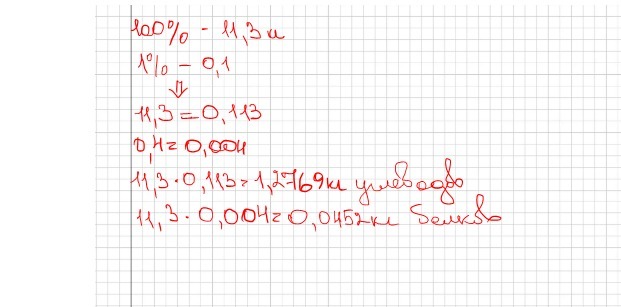 100% - 11,3 кг
1% - 0,1
⇓
11,3 = 0,113
0,4 = 0,004
11,3 · 0,113 = 1,2769 кг углеводов
11,3 · 0,004 = 0,0452 кг белков